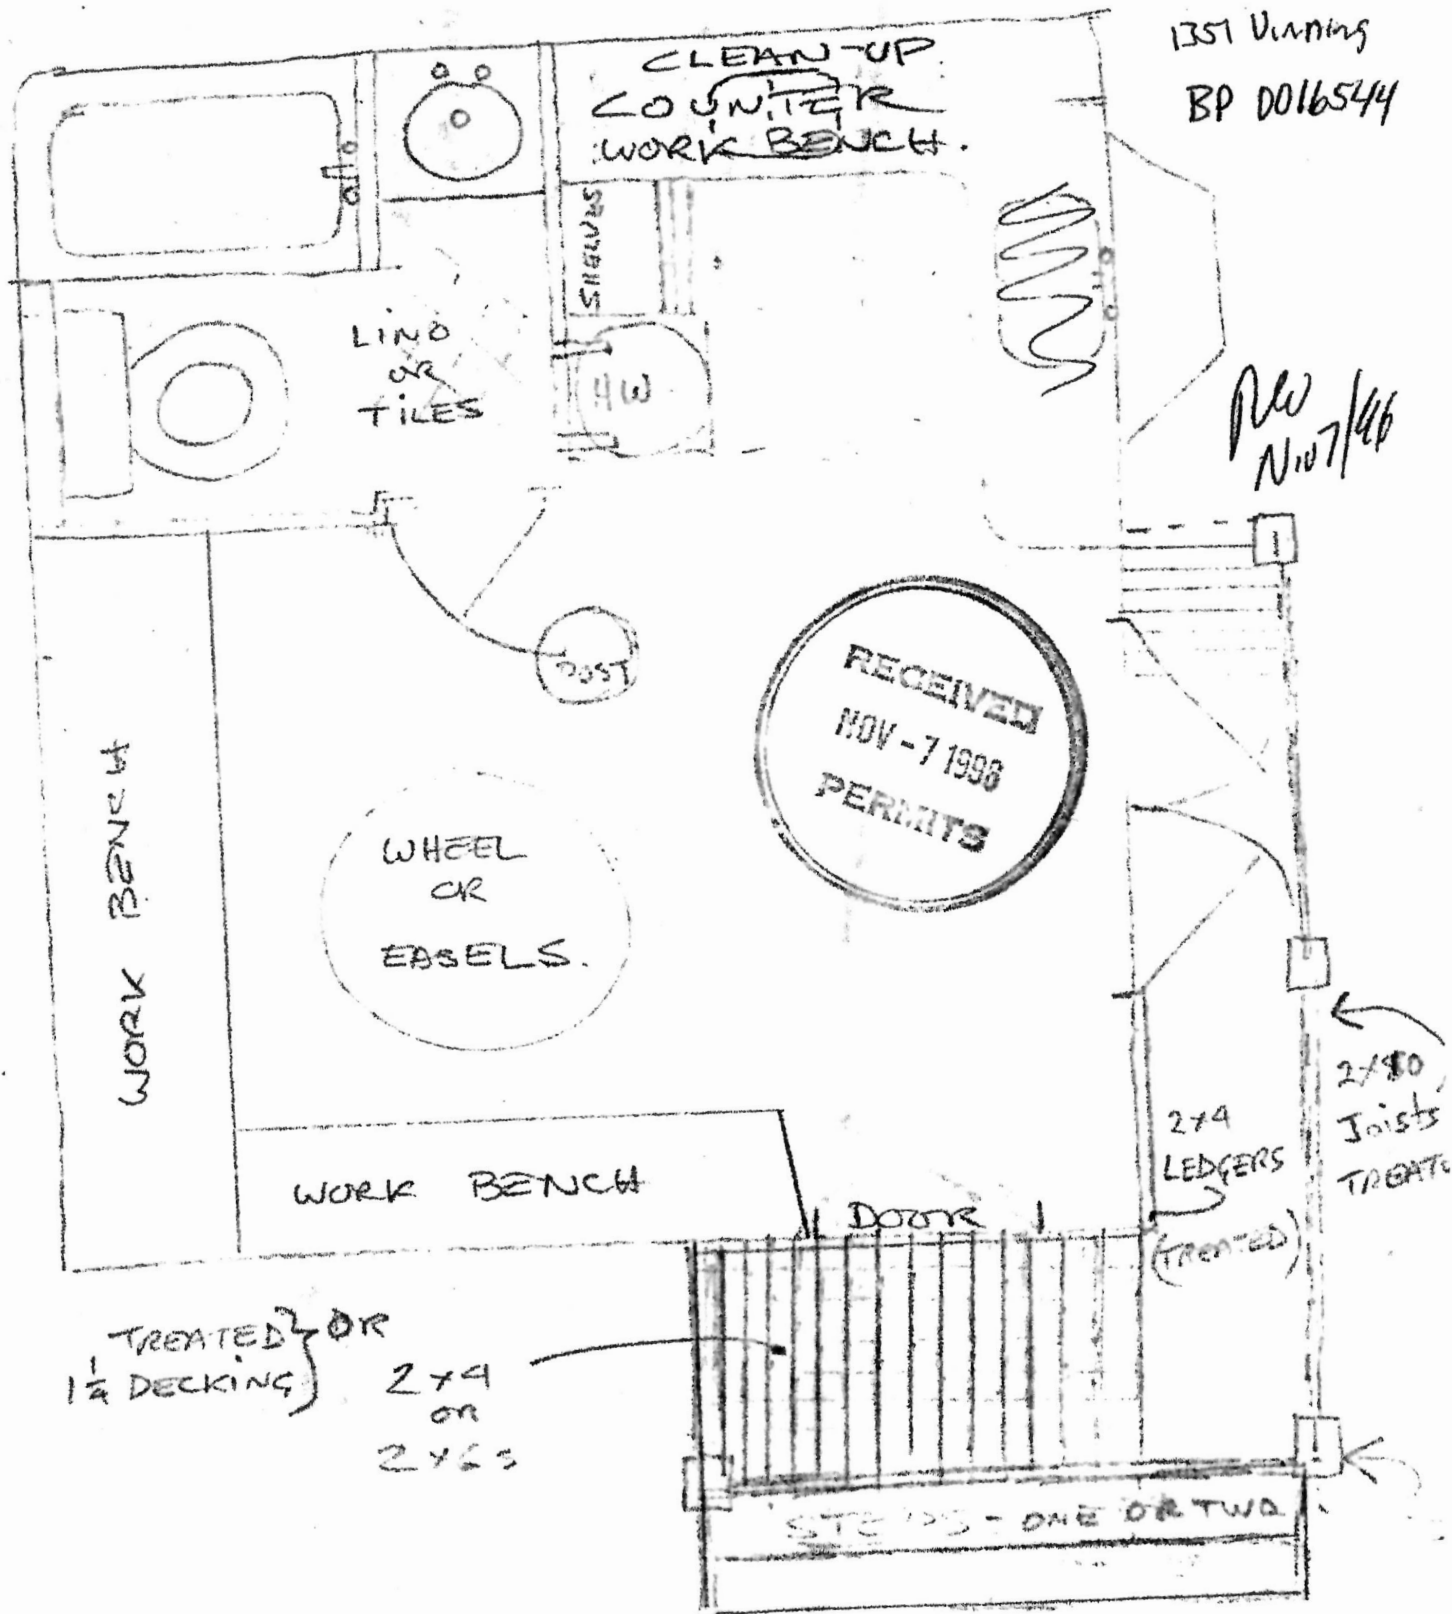 1351 Vining
BP 0016544
CLEAN-UP
COUNTER
WORK BENCH.
SHELVES
LINO
OR
TILES
HW
Nov 7/96
POST
RECEIVED
NOV - 7 1996
PERMITS
WORK BENCH
WHEEL
OR
EASELS.
WORK BENCH
DOOR
2x4
LEDGERS
(TREATED)
Joists
TREATE
TREATED } OR
1 1/4 DECKING
2x4
OR
2x6s
STEPS - ONE OR TWO